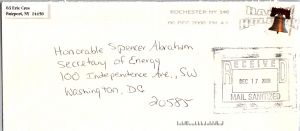 Fairport, NY 14450
ROCHESTER NY 146
Honorable Spencer Abraham
Secretary of Energy
1000 Independence Ave., SW
Washington, DC
20585
RECEIVED
DEC 17 2008
MAIL SANITIZED